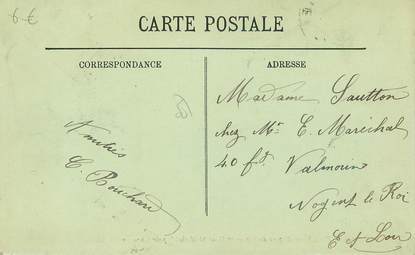 6 €
CARTE POSTALE
CORRESPONDANCE
ADRESSE
Madame Sautton
chez Mr E. Maréchal
40 fg Valmorin
Nogent le Roi
E et Loir
Amitiés
C. Bouchard